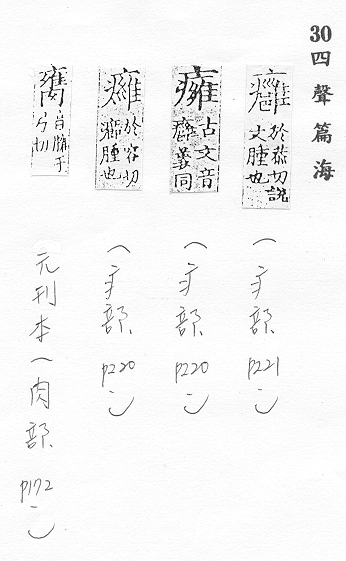 30四聲篇海
於恭切說文腫也
（疒部 p221）
癕 古文音癰義同
（疒部 p220）
於容切癤腫也
（疒部 p220）
切
元刊本（肉部 p172）